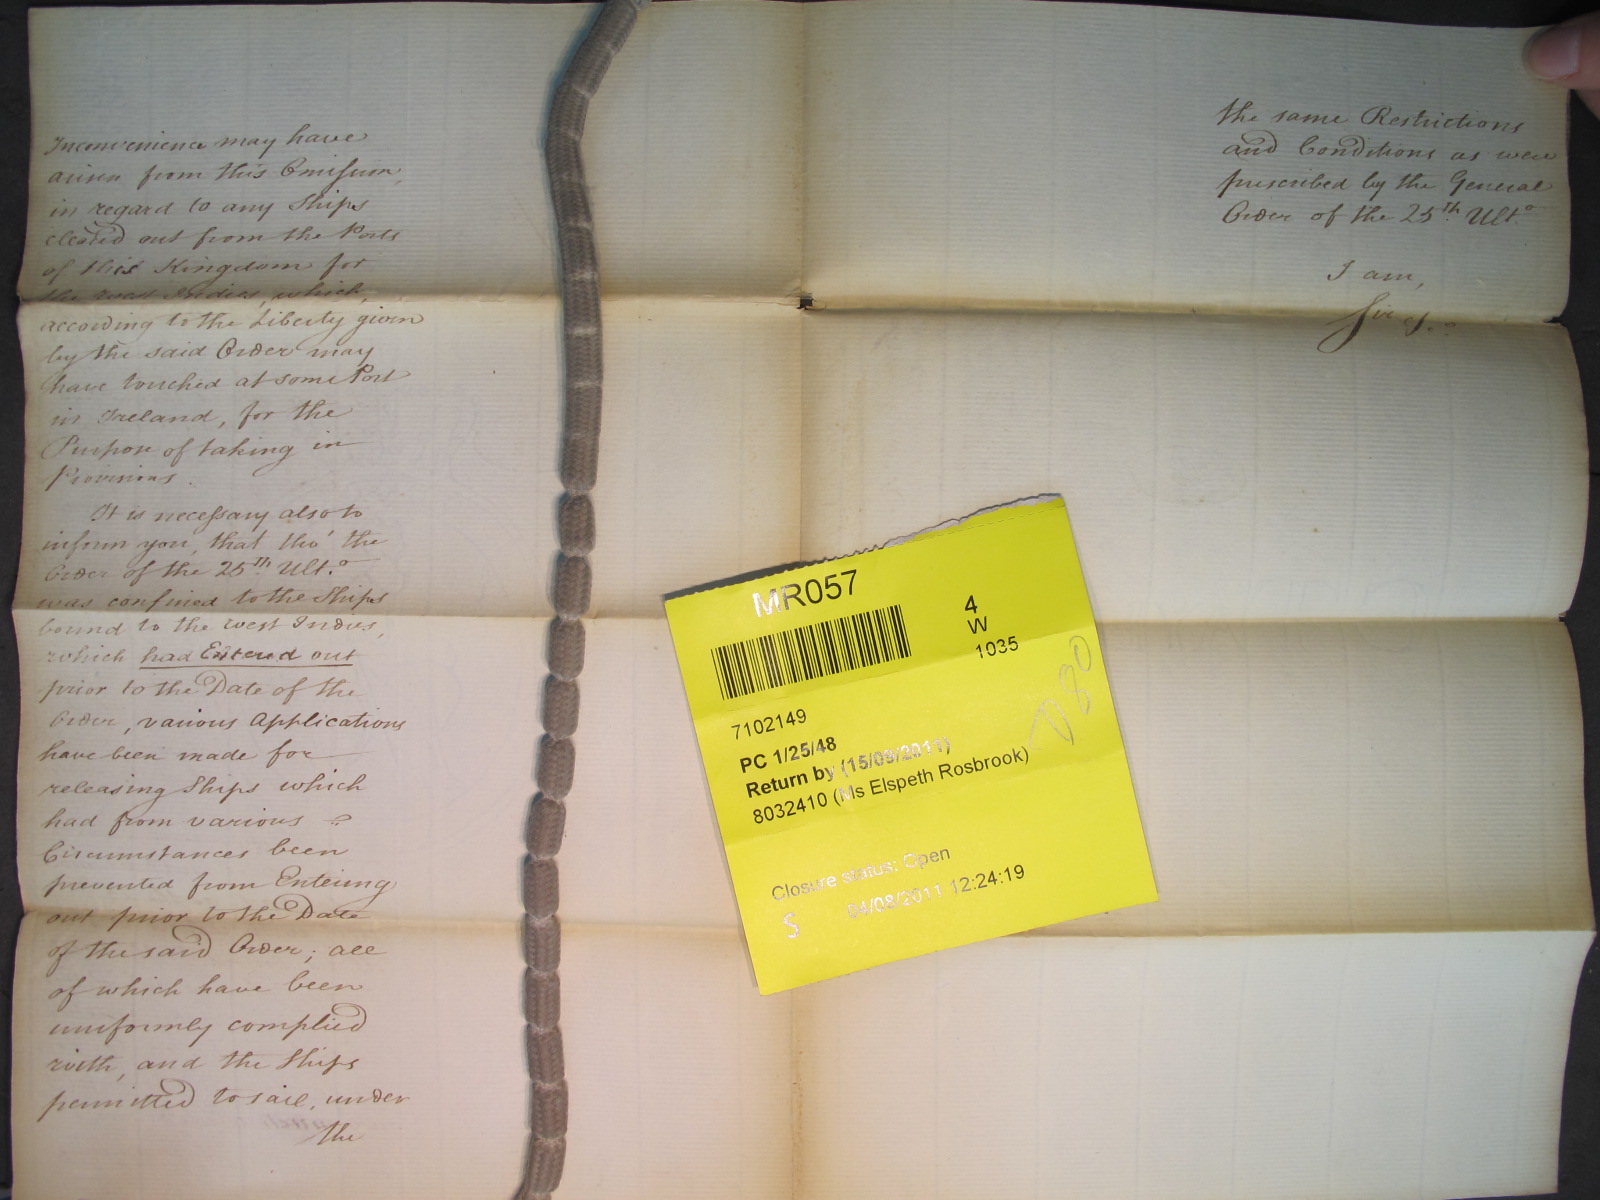 Inconvenience may have
arisen from this Omission,
in regard to any Ships
cleared out from the Ports
of this Kingdom for
the West Indies, which,
according to the Liberty given
by the said Order may
have touched at some Port
in Ireland, for the
Purpose of taking in
Provisions.
It is necessary also to
inform you, that tho' the
Order of the 25th Ulto
was confined to the Ships
bound to the West Indies,
which had Entered out
prior to the Date of the
Order, various Applications
have been made for
releasing Ships which
had from various
Circumstances been
prevented from Entering
out prior to the Date
of the said Order; all
of which have been
uniformly complied
with, and the Ships
permitted to sail, under
the
the same Restrictions
and Conditions as were
prescribed by the General
Order of the 25th Ulto
I am,
Sir &c.
MR057
4
W
1035
D80
7102149
PC 1/25/48
Return by (15/09/2011)
8032410 (Ms Elspeth Rosbrook)
Closure status: Open
S 04/08/2011 12:24:19